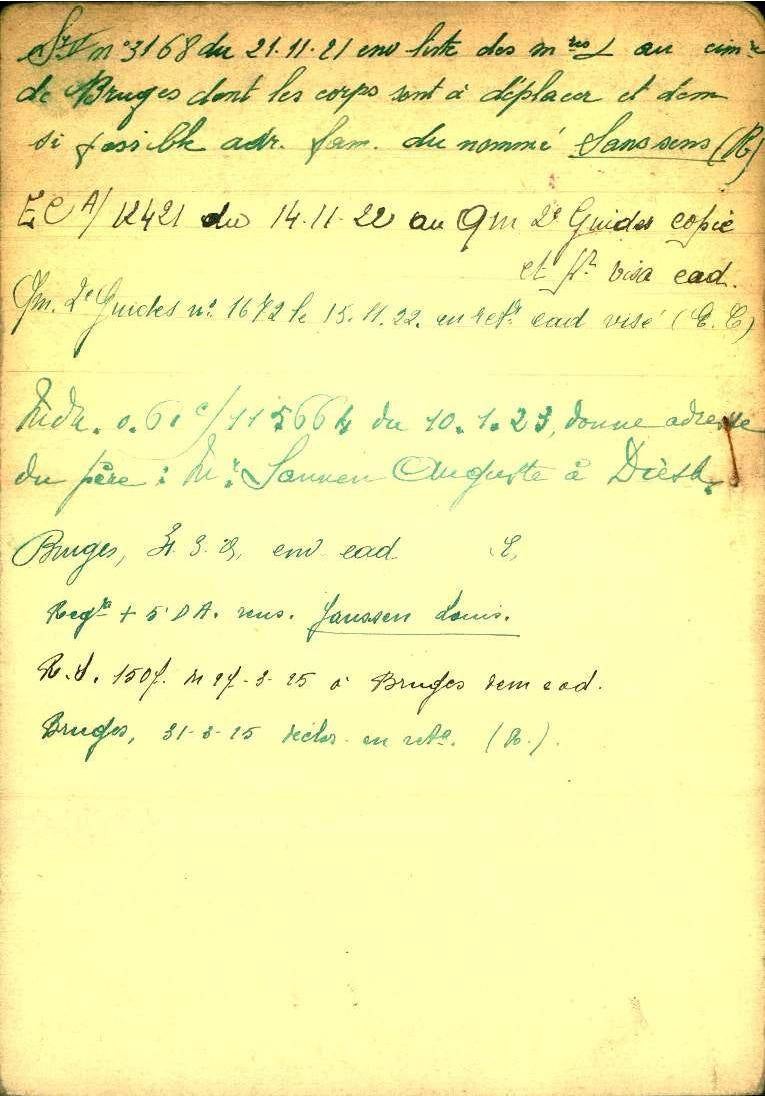 n° 3168 du 21.11.21 env liste des m res au cim re
de Bruges dont les corps sont à déplacer et dem
si possible adr. fam. du nommé Sanssens (R)
E C A/ 12421 du 14-11-22 au Qm 2e Guides copie
et pr visa cad.
Qm. 2e Guides n° 1672 le 15.11.22. en ret. cad visé (E.C)
0.61 c/115664 du 10.1.23, donne adresse
du père : Mr Sannen Auguste à Diest.
Bruges, env cad E,
+ 5 D A. rens. Janssen Louis.
R.S. 1507. 27-3-25 à Bruges dem cad.
Bruges, 31-3-25 (R.).